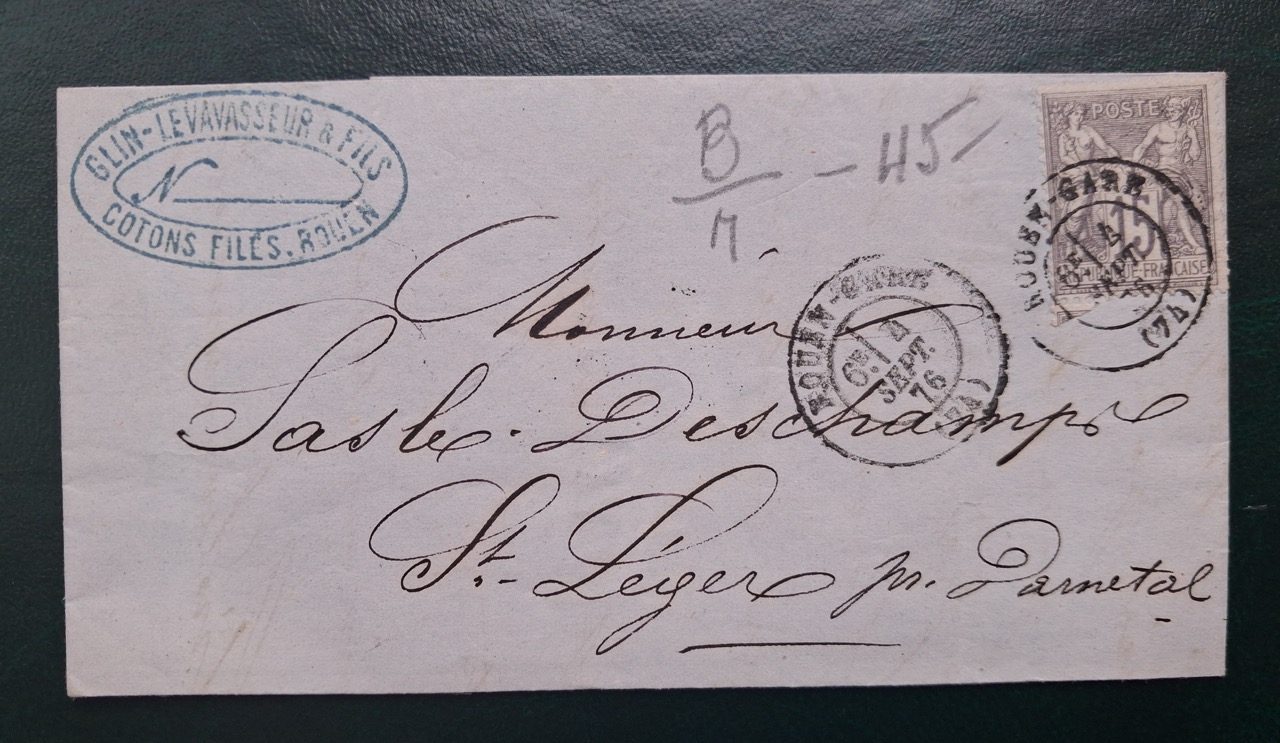 GLIN-LEVAVASSEUR & FILS
N
COTONS FILÉS. ROUEN
B - 45 -
7
POSTE
15
REPUBLIQUE-FRANCAISE
ROUEN-GARE
6E 4
SEPT.
76
(74)
ROUEN-GARE
6E 4
SEPT.
76
(74)
Monsieur
Pasle. Deschamps
St. Léger pr. Darnetal